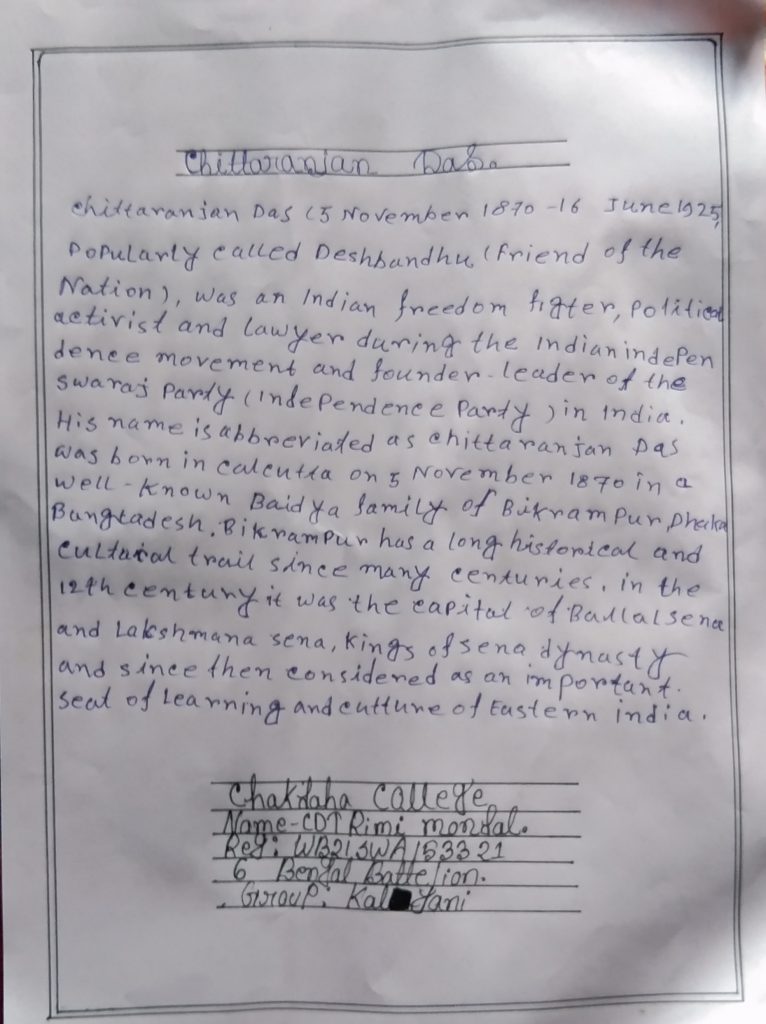 Chittaranjan Das.
Chittaranjan Das (5 November 1870 - 16 June 1925,
Popularly called Deshbandhu (friend of the
Nation), was an Indian freedom figter, Political
activist and Lawyer during the Indian indepen
dence movement and founder-leader of the
Swaraj Party (Independence Party) in India.
His name is abbreviated as Chittaranjan Das
was born in Calcutta on 5 November 1870 in a
well-known Baidya family of Bikrampur, Dhaka
Bangladesh. Bikrampur has a long historical and
cultural trail since many centuries. in the
12th century it was the capital of Ballal Sena
and Lakshmana sena, kings of sena dynasty
and since then considered as an important.
seat of Learning and cutture of Eastern india.
Chakdaha College
Name-CDT Rimi mondal.
Reg: WB21SWA153321
6 Bengal Battelion.
Group. Kal yani